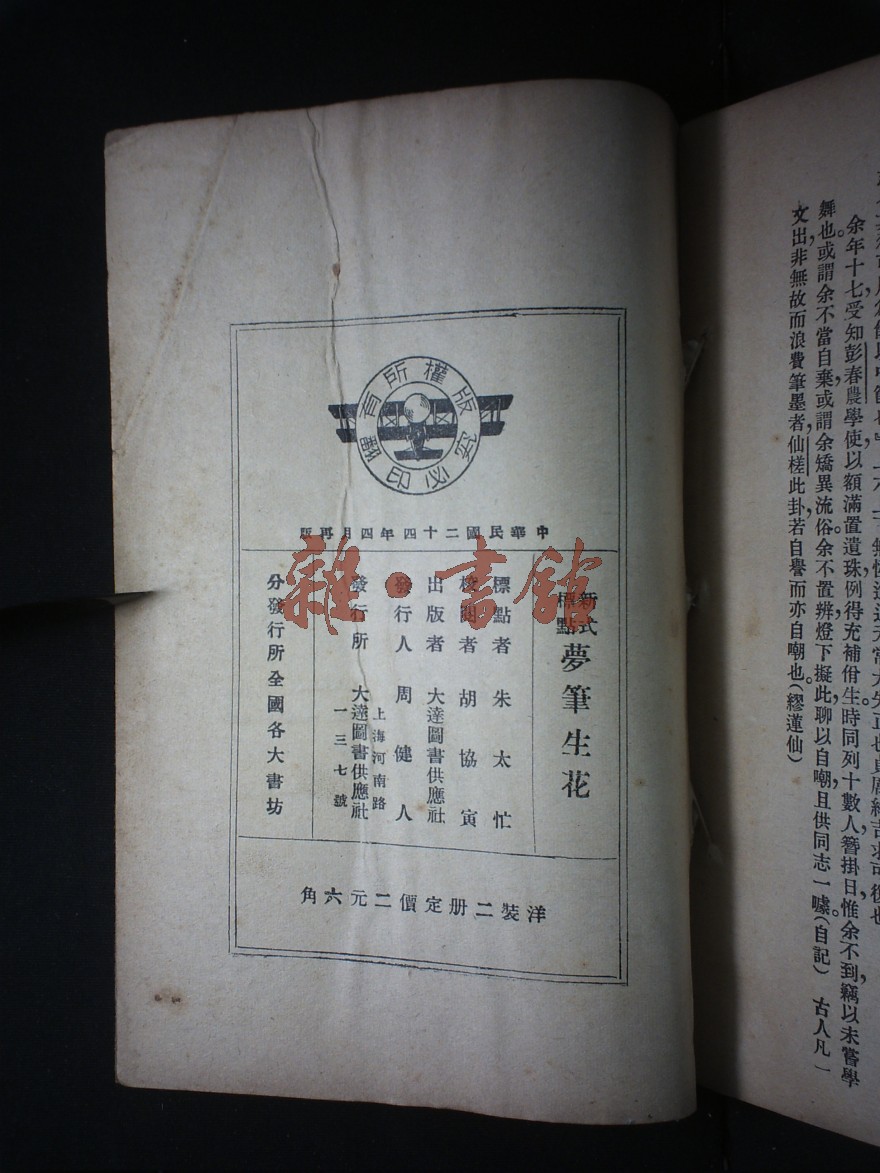 版權所有
翻印必究
中華民國二十四年四月再版
新式標點 夢筆生花
標點者 朱太忙
校閱者 胡協寅
出版者 大達圖書供應社
發行人 周健人
上海河南路
發行所 大達圖書供應社
一三七號
分發行所 全國各大書坊
洋裝二册定價二元六角
雜·書館
余年十七,受知彭春農學使,以額滿置遺珠,例得充補佾生,時同列十數人,簪掛日惟余不到,竊以未嘗學
舞也。或謂余不當自棄,或謂余矯異流俗,余不置辨,燈下擬此,聊以自嘲,且供同志一噱。(自記) 古人凡一
文出,非無故而浪費筆墨者,仙槎此卦,若自譽而亦自嘲也(繆蓮仙)